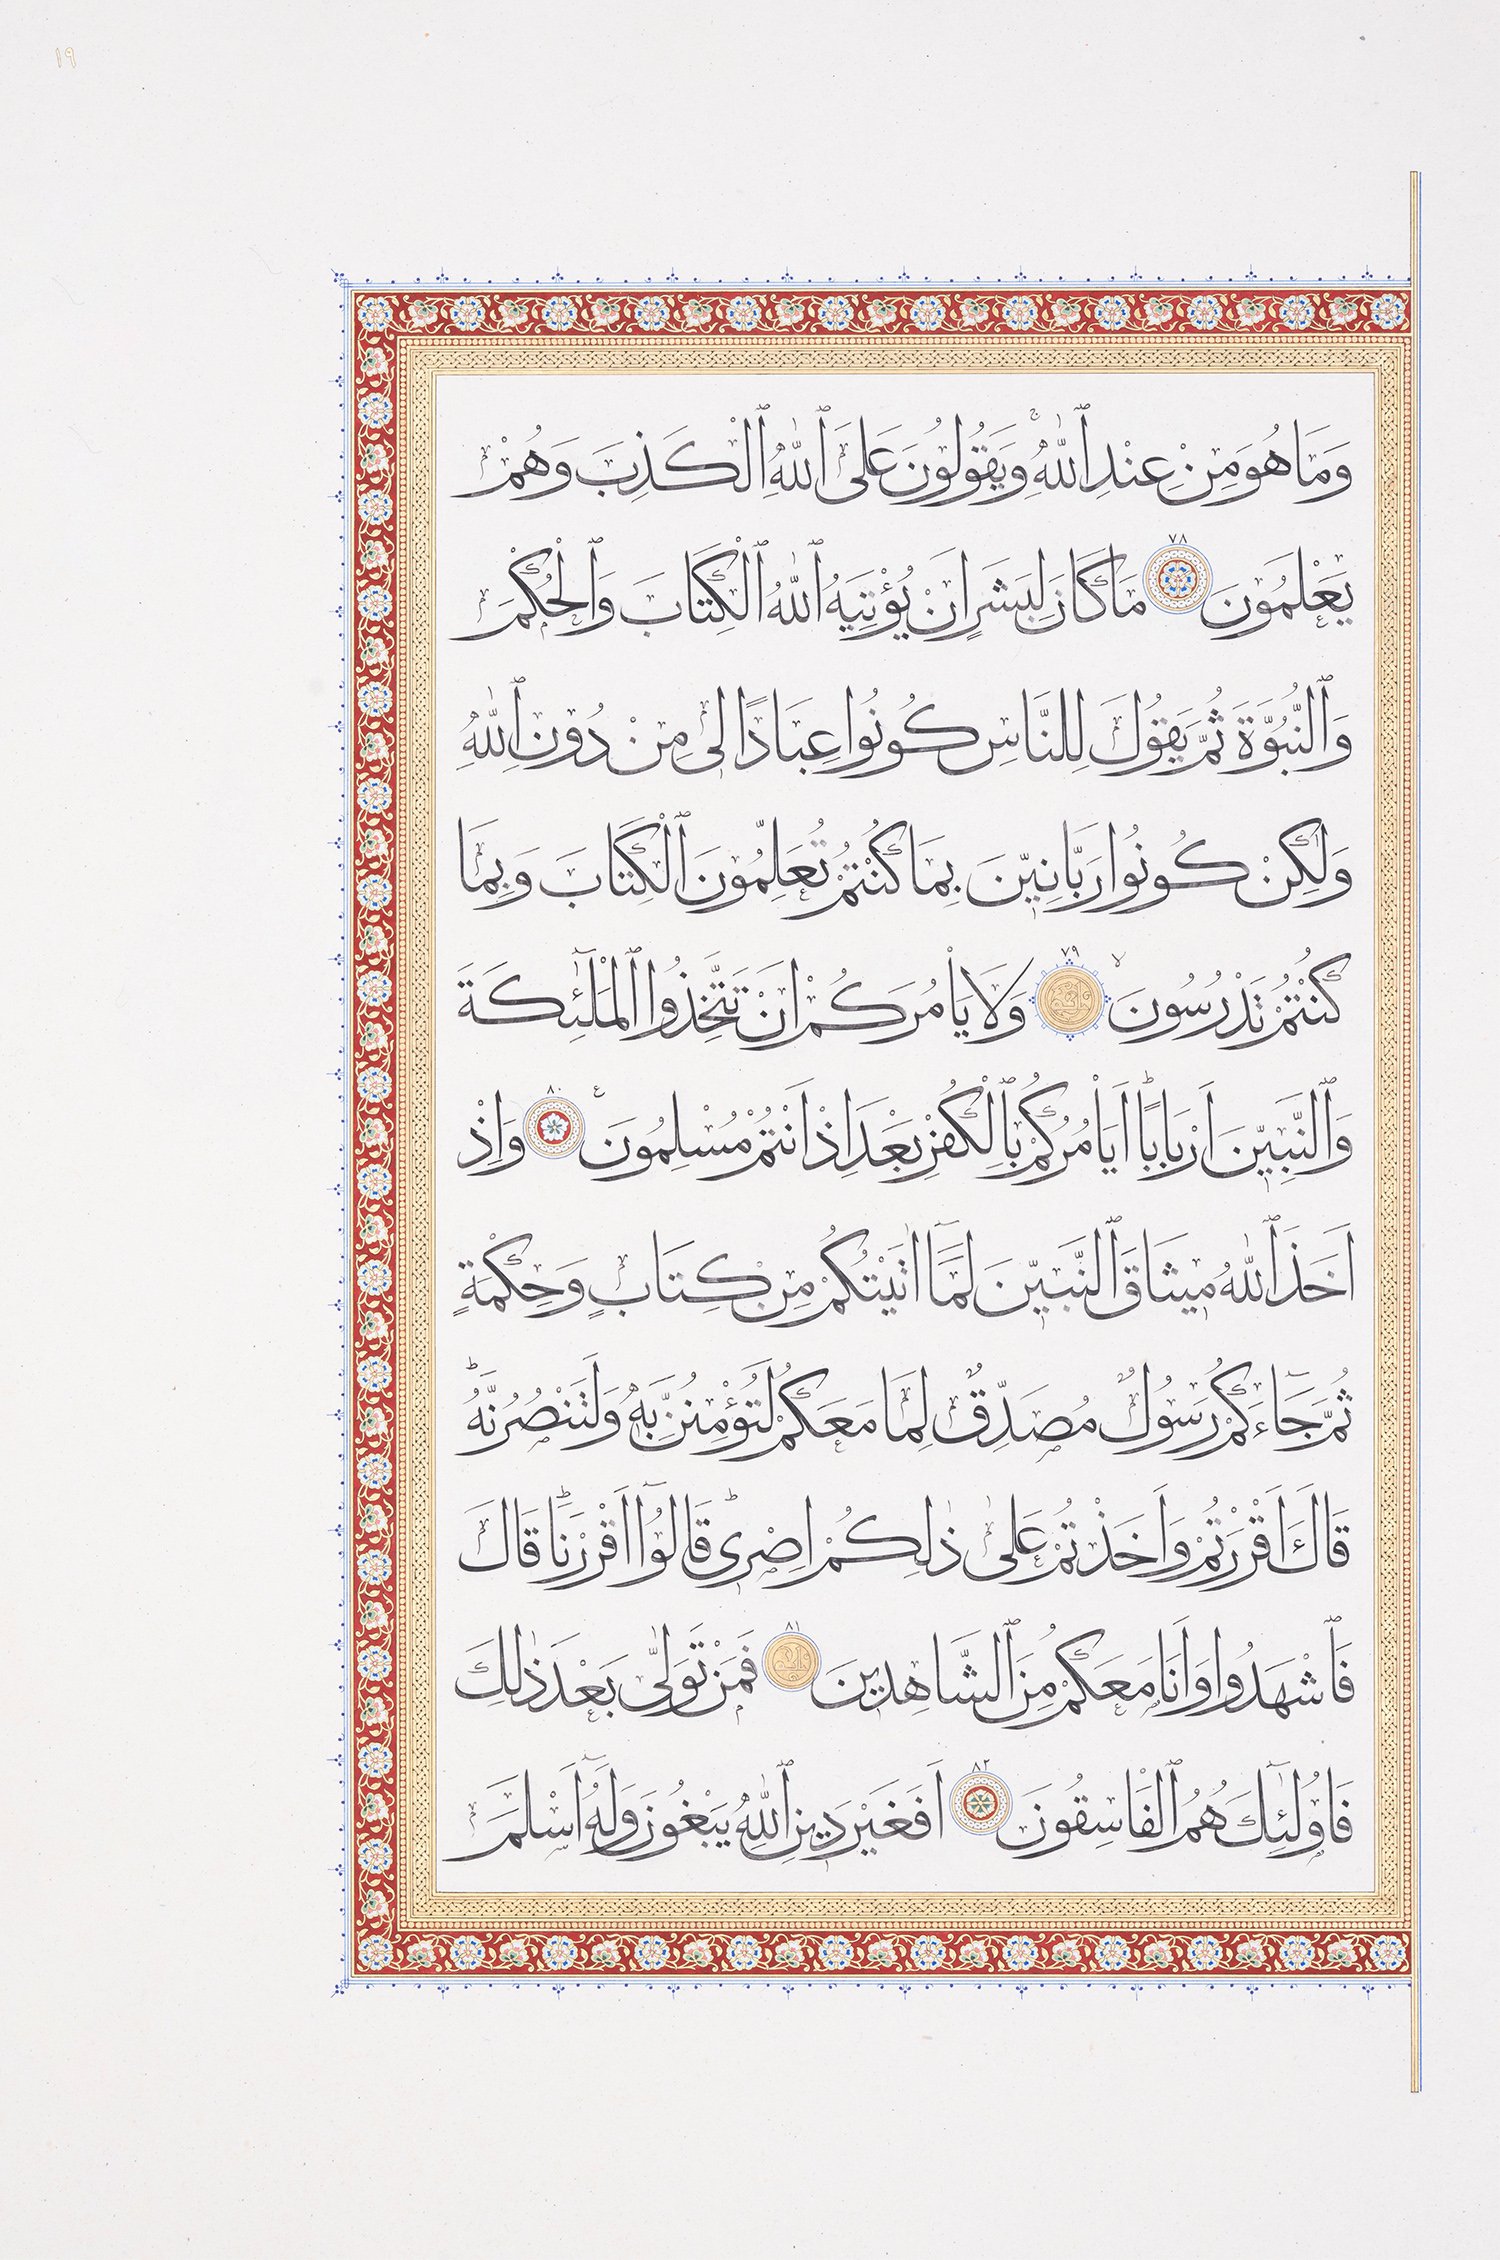 ١٩
وَمَا هُوَ مِنْ عِنْدِ ٱللّٰهِۚ وَيَقُولُونَ عَلَى ٱللّٰهِ ٱلْكَذِبَ وَهُمْ
يَعْلَمُونَ ٧٨ مَا كَانَ لِبَشَرٍ اَنْ يُؤْتِيَهُ ٱللّٰهُ ٱلْكِتَابَ وَٱلْحُكْمَ
وَٱلنُّبُوَّةَ ثُمَّ يَقُولَ لِلنَّاسِ كُونُوا عِبَادًا لٖى مِنْ دُونِ ٱللّٰهِ
وَلٰكِنْ كُونُوا رَبَّانِيّٖنَ بِمَا كُنْتُمْ تُعَلِّمُونَ ٱلْكِتَابَ وَبِمَا
كُنْتُمْ تَدْرُسُونَۙ ٧٩ وَلَا يَاْمُرَكُمْ اَنْ تَتَّخِذُوا ٱلْمَلٰٓئِكَةَ
وَٱلنَّبِيّٖنَ اَرْبَابًاؕ اَيَاْمُرُكُمْ بِٱلْكُفْرِ بَعْدَ اِذْ اَنْتُمْ مُسْلِمُونَࣖ ٨٠ وَاِذْ
اَخَذَ ٱللّٰهُ مٖيثَاقَ ٱلنَّبِيّٖنَ لَمَٓا اٰتَيْتُكُمْ مِنْ كِتَابٍ وَحِكْمَةٍ
ثُمَّ جَٓاءَكُمْ رَسُولٌ مُصَدِّقٌ لِمَا مَعَكُمْ لَتُؤْمِنُنَّ بِهٖ وَلَتَنْصُرُنَّهُؕ
قَالَ ءَاَقْرَرْتُمْ وَاَخَذْتُمْ عَلٰى ذٰلِكُمْ اِصْرٖىؕ قَالُٓوا اَقْرَرْنَاؕ قَالَ
فَٱشْهَدُوا وَاَنَا مَعَكُمْ مِنَ ٱلشَّاهِدٖينَ ٨١ فَمَنْ تَوَلّٰى بَعْدَ ذٰلِكَ
فَاُولٰٓئِكَ هُمُ ٱلْفَاسِقُونَ ٨٢ اَفَغَيْرَ دٖينِ ٱللّٰهِ يَبْغُونَ وَلَهُٓ اَسْلَمَ